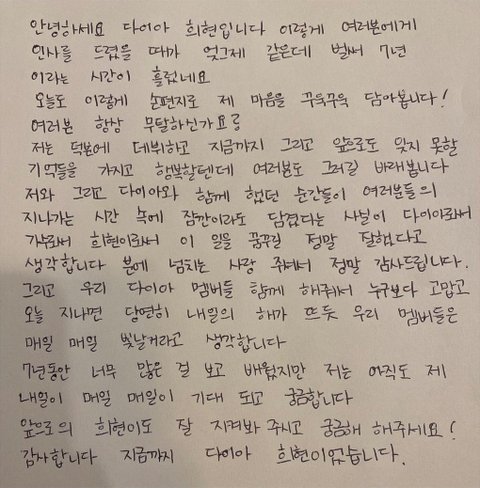 안녕하세요 다이아 희현입니다 이렇게 여러분에게
인사를 드렸을 때가 엊그제 같은데 벌써 7년
이라는 시간이 흘렀네요
오늘도 이렇게 손편지로 제 마음을 꾸욱꾸욱 담아봅니다!
여러분 항상 무탈하신가요?
저는 덕분에 데뷔하고 지금까지 그리고 앞으로도 잊지 못할
기억들을 가지고 행복할텐데 여러분도 그러길 바래봅니다
저와 그리고 다이아와 함께 했던 순간들이 여러분들의
지나가는 시간 속에 잠깐이라도 담겼다는 사실이 다이아로써
가수로써 희현이로써 이 일을 꿈꾸길 정말 잘했다고
생각합니다 분에 넘치는 사랑 주셔서 정말 감사드립니다.
그리고 우리 다이아 멤버들 함께 해줘서 누구보다 고맙고
오늘 지나면 당연히 내일의 해가 뜨듯 우리 멤버들은
매일 매일 빛날거라고 생각합니다
7년동안 너무 많은 걸 보고 배웠지만 저는 아직도 제
내일이 매일 매일이 기대 되고 궁금합니다
앞으로의 희현이도 잘 지켜봐 주시고 궁금해 해주세요!
감사합니다 지금까지 다이아 희현이었습니다.